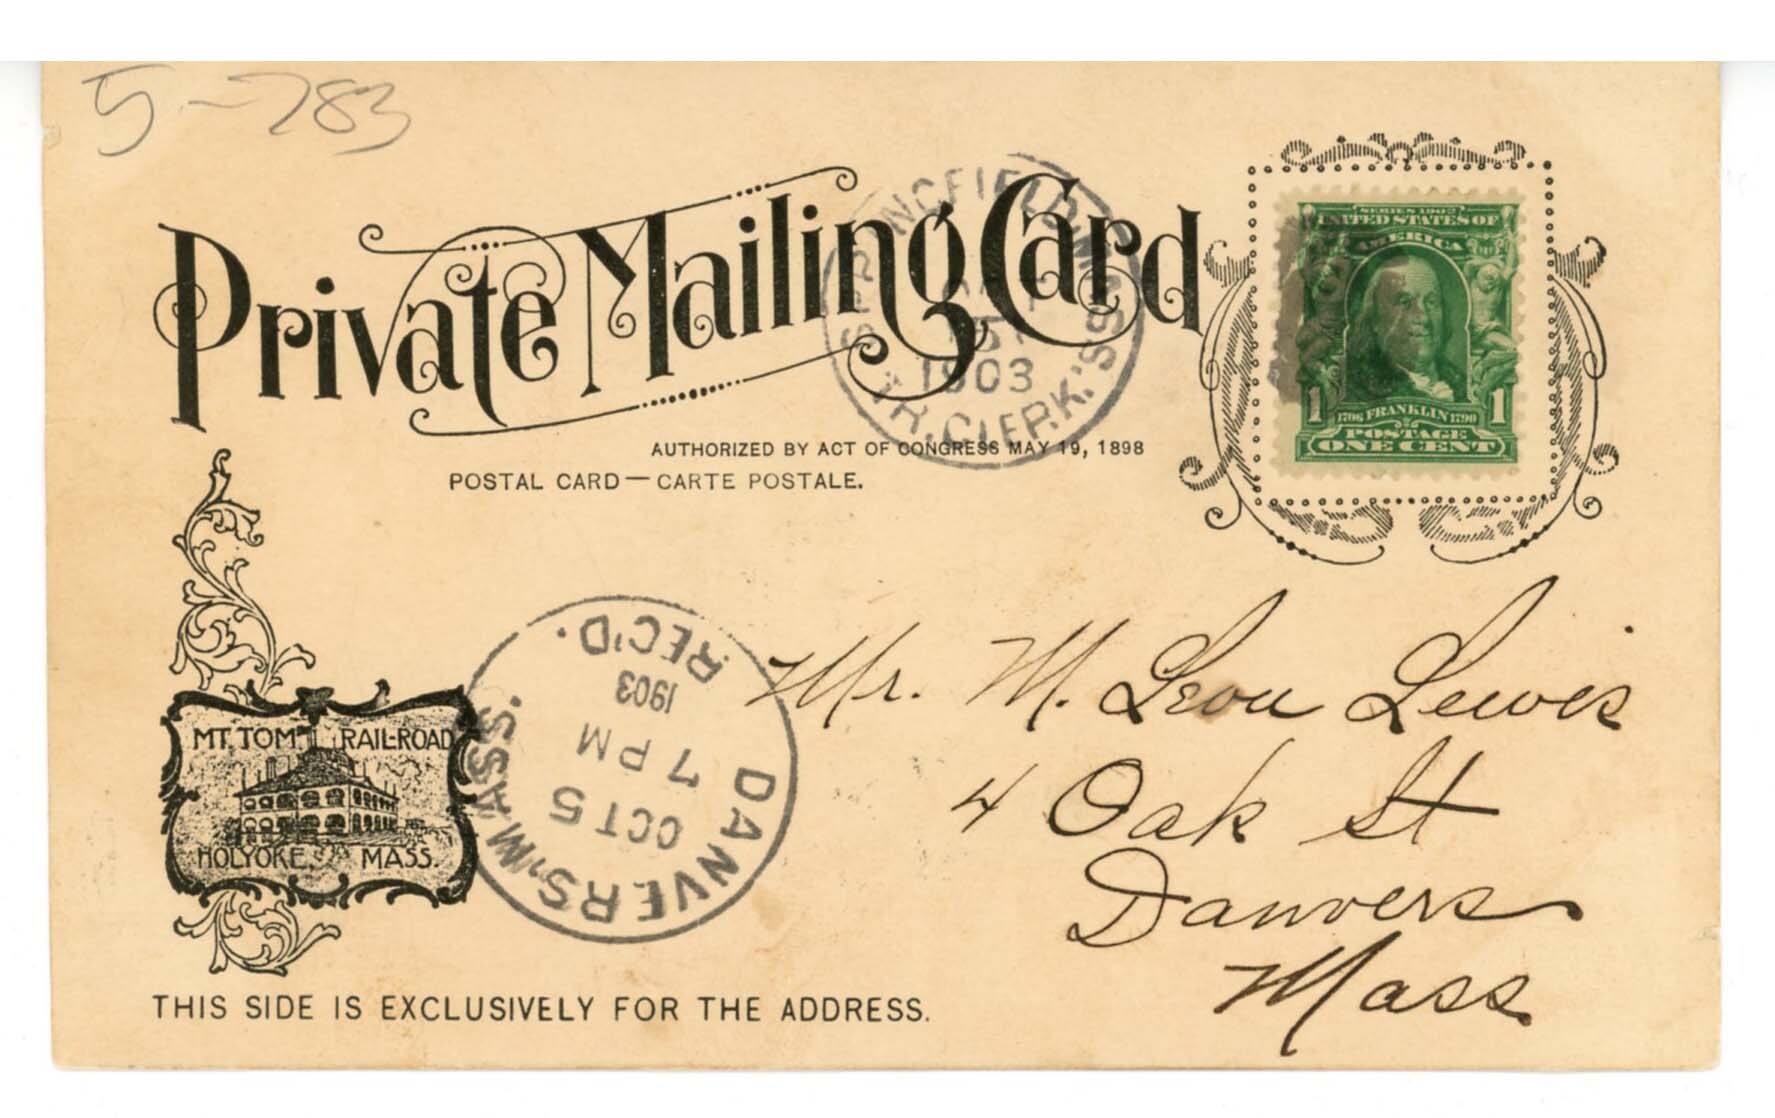 5-783
Private Mailing Card
SPRINGFIELD, MASS.
OCT
1903
TR. CLERK.
SERIES 1902
UNITED STATES OF
AMERICA
1 1706 FRANKLIN 1790 1
POSTAGE
ONE CENT
AUTHORIZED BY ACT OF CONGRESS MAY 19, 1898
POSTAL CARD — CARTE POSTALE.
DANVERS, MASS.
OCT 5
7 PM
1903
REC'D.
Mr. M. Leon Lewis
4 Oak St
Danvers
Mass
MT. TOM RAIL-ROAD
HOLYOKE, MASS.
THIS SIDE IS EXCLUSIVELY FOR THE ADDRESS.